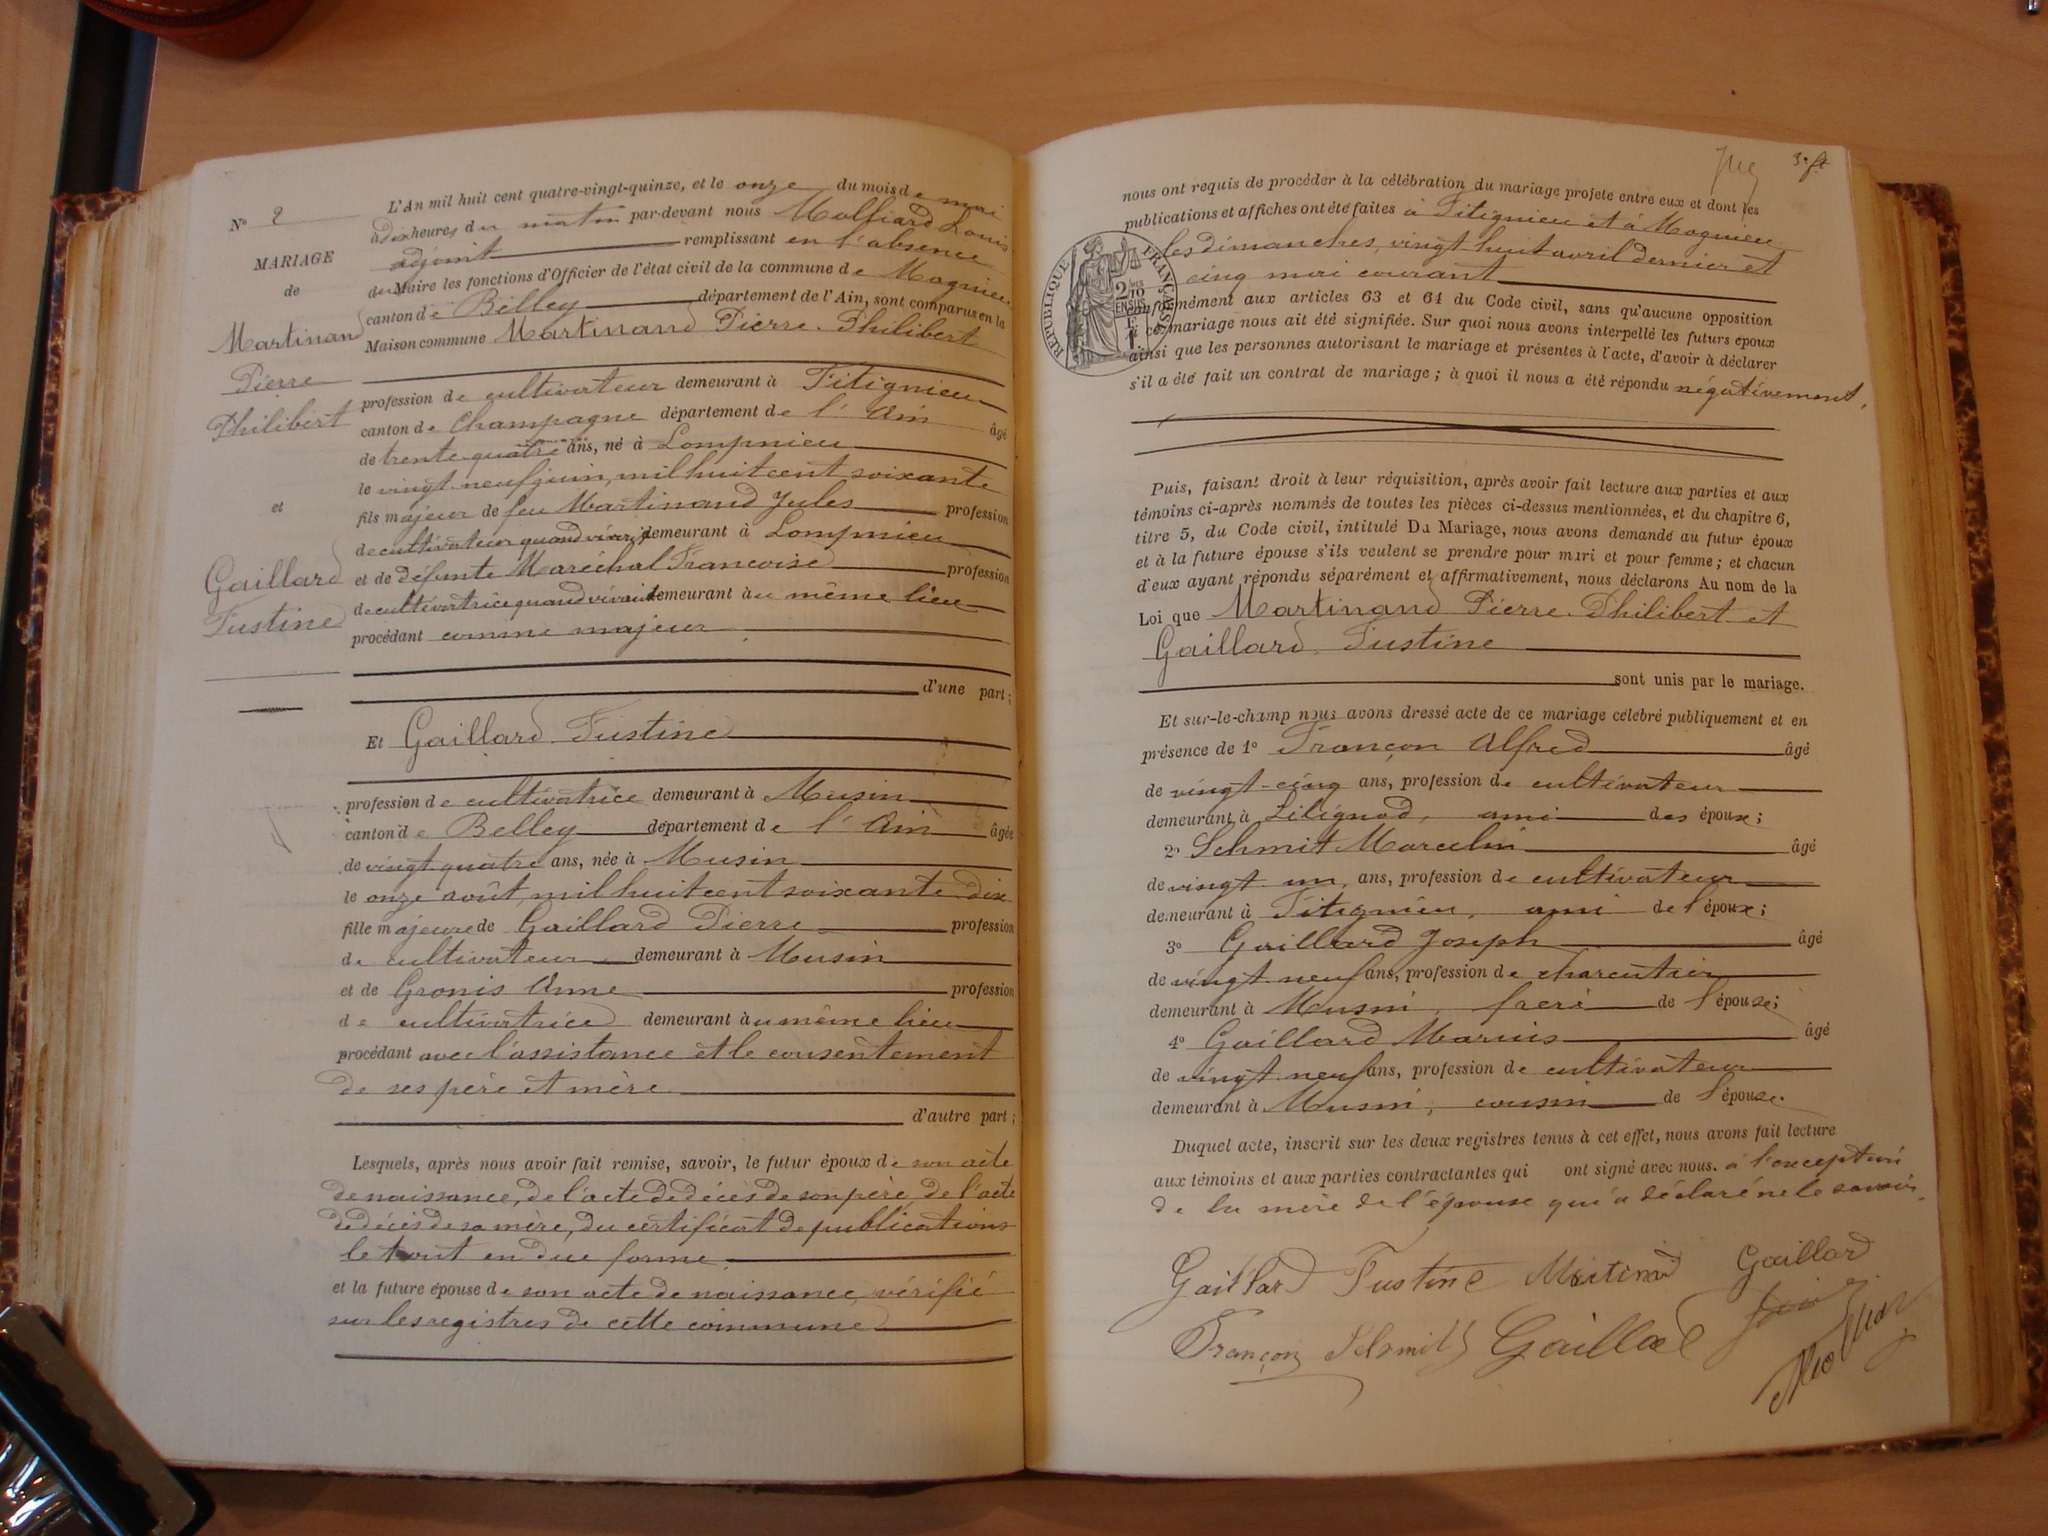 N° 2
MARIAGE
de
Martinand
Pierre
Philibert
et
Gaillard
Justine
L'An mil huit cent quatre-vingt-quinze, et le onze du mois de mai
à dix heures du matin par-devant nous Molliard Louis
adjoint remplissant en l'absence
du Maire les fonctions d'Officier de l'état civil de la commune de Magnieu
canton de Belley département de l'Ain, sont comparus en la
Maison commune Martinand Pierre Philibert
profession de cultivateur demeurant à Fitignieu
canton de Champagne département de l'Ain âgé
de trente-quatre ans, né à Lompnieu
le vingt neuf juin, mil huit cent soixante
fils majeur de feu Martinand Jules profession
de cultivateur quand vivait demeurant à Lompnieu
et de défunte Maréchal Francoise profession
de cultivatrice quand vivait demeurant au même lieu
procédant comme majeur
d'une part;
Et Gaillard Justine
profession de cultivatrice demeurant à Musin
canton de Belley département de l'Ain âgée
de vingt quatre ans, née à Musin
le onze août, mil huit cent soixante dix
fille majeure de Gaillard Pierre profession
de cultivateur demeurant à Musin
et de Gronis Anne profession
de cultivatrice demeurant au même lieu
procédant avec l'assistance et le consentement
de ses père et mère
d'autre part;
Lesquels, après nous avoir fait remise, savoir, le futur époux de son acte
de naissance, de l'acte de décès de son père, de l'acte
de décès de sa mère, du certificat de publications
le tout en due forme
et la future épouse de son acte de naissance, vérifié
sur les registres de cette commune
3e ft
nous ont requis de procéder à la célébration du mariage projeté entre eux et dont les
publications et affiches ont été faites à Fitignieu et à Magnieu
les dimanches, vingt huit avril dernier et
cinq mai courant
conformément aux articles 63 et 64 du Code civil, sans qu'aucune opposition
à ce mariage nous ait été signifiée. Sur quoi nous avons interpellé les futurs époux
ainsi que les personnes autorisant le mariage et présentes à l'acte, d'avoir à déclarer
s'il a été fait un contrat de mariage; à quoi il nous a été répondu négativement.
RÉPUBLIQUE FRANÇAISE
2/10 EN SUS
Puis, faisant droit à leur réquisition, après avoir fait lecture aux parties et aux
témoins ci-après nommés de toutes les pièces ci-dessus mentionnées, et du chapitre 6,
titre 5, du Code civil, intitulé Du Mariage, nous avons demandé au futur époux
et à la future épouse s'ils veulent se prendre pour mari et pour femme; et chacun
d'eux ayant répondu séparément et affirmativement, nous déclarons Au nom de la
Loi que Martinand Pierre Philibert et
Gaillard Justine
sont unis par le mariage.
Et sur-le-champ nous avons dressé acte de ce mariage célébré publiquement et en
présence de 1° Françon Alfred âgé
de vingt-cinq ans, profession de cultivateur
demeurant à Lilignod, ami des époux;
2° Schmit Marcelin âgé
de vingt un ans, profession de cultivateur
demeurant à Fitignieu, ami de l'époux;
3° Gaillard Joseph âgé
de vingt neuf ans, profession de charcutier
demeurant à Musin, frère de l'épouse;
4° Gaillard Marius âgé
de vingt neuf ans, profession de cultivateur
demeurant à Musin, cousin de l'épouse.
Duquel acte, inscrit sur les deux registres tenus à cet effet, nous avons fait lecture
aux témoins et aux parties contractantes qui ont signé avec nous. à l'exception
de la mère de l'épouse qui a déclaré ne le savoir.
Gaillard Justine Martinand Gaillard
Françon Schmit Gaillard